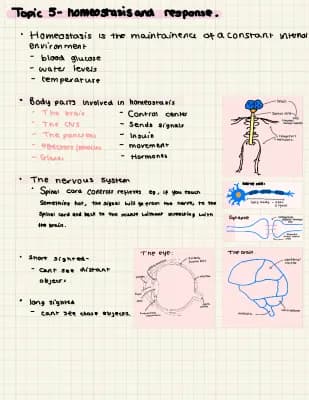 Topic 5- homeostasis and response.
• Homeostasis is the maintainence of a constant internal
environment
- blood glucose
- water levels
- temperature
• Body parts involved in homeostasis
- The brain - Control center
- The CNS - Sends signals
- The pancreas - Insulin
- effectors (muscles) - movement
- Glands - Hormones
brain
Spinal cord
• The nervous system
• Spinal cord controls reflexes eg, if you touch
Something hot, the signal will go from the nerve, to the
Spinal cord and back to the muscle without interfering with
the brain.
nerve cell:
Synapse
• short sighted-
- Cant see distant
objects
• long sighted
- cant see close objects.
The eye:
The brain